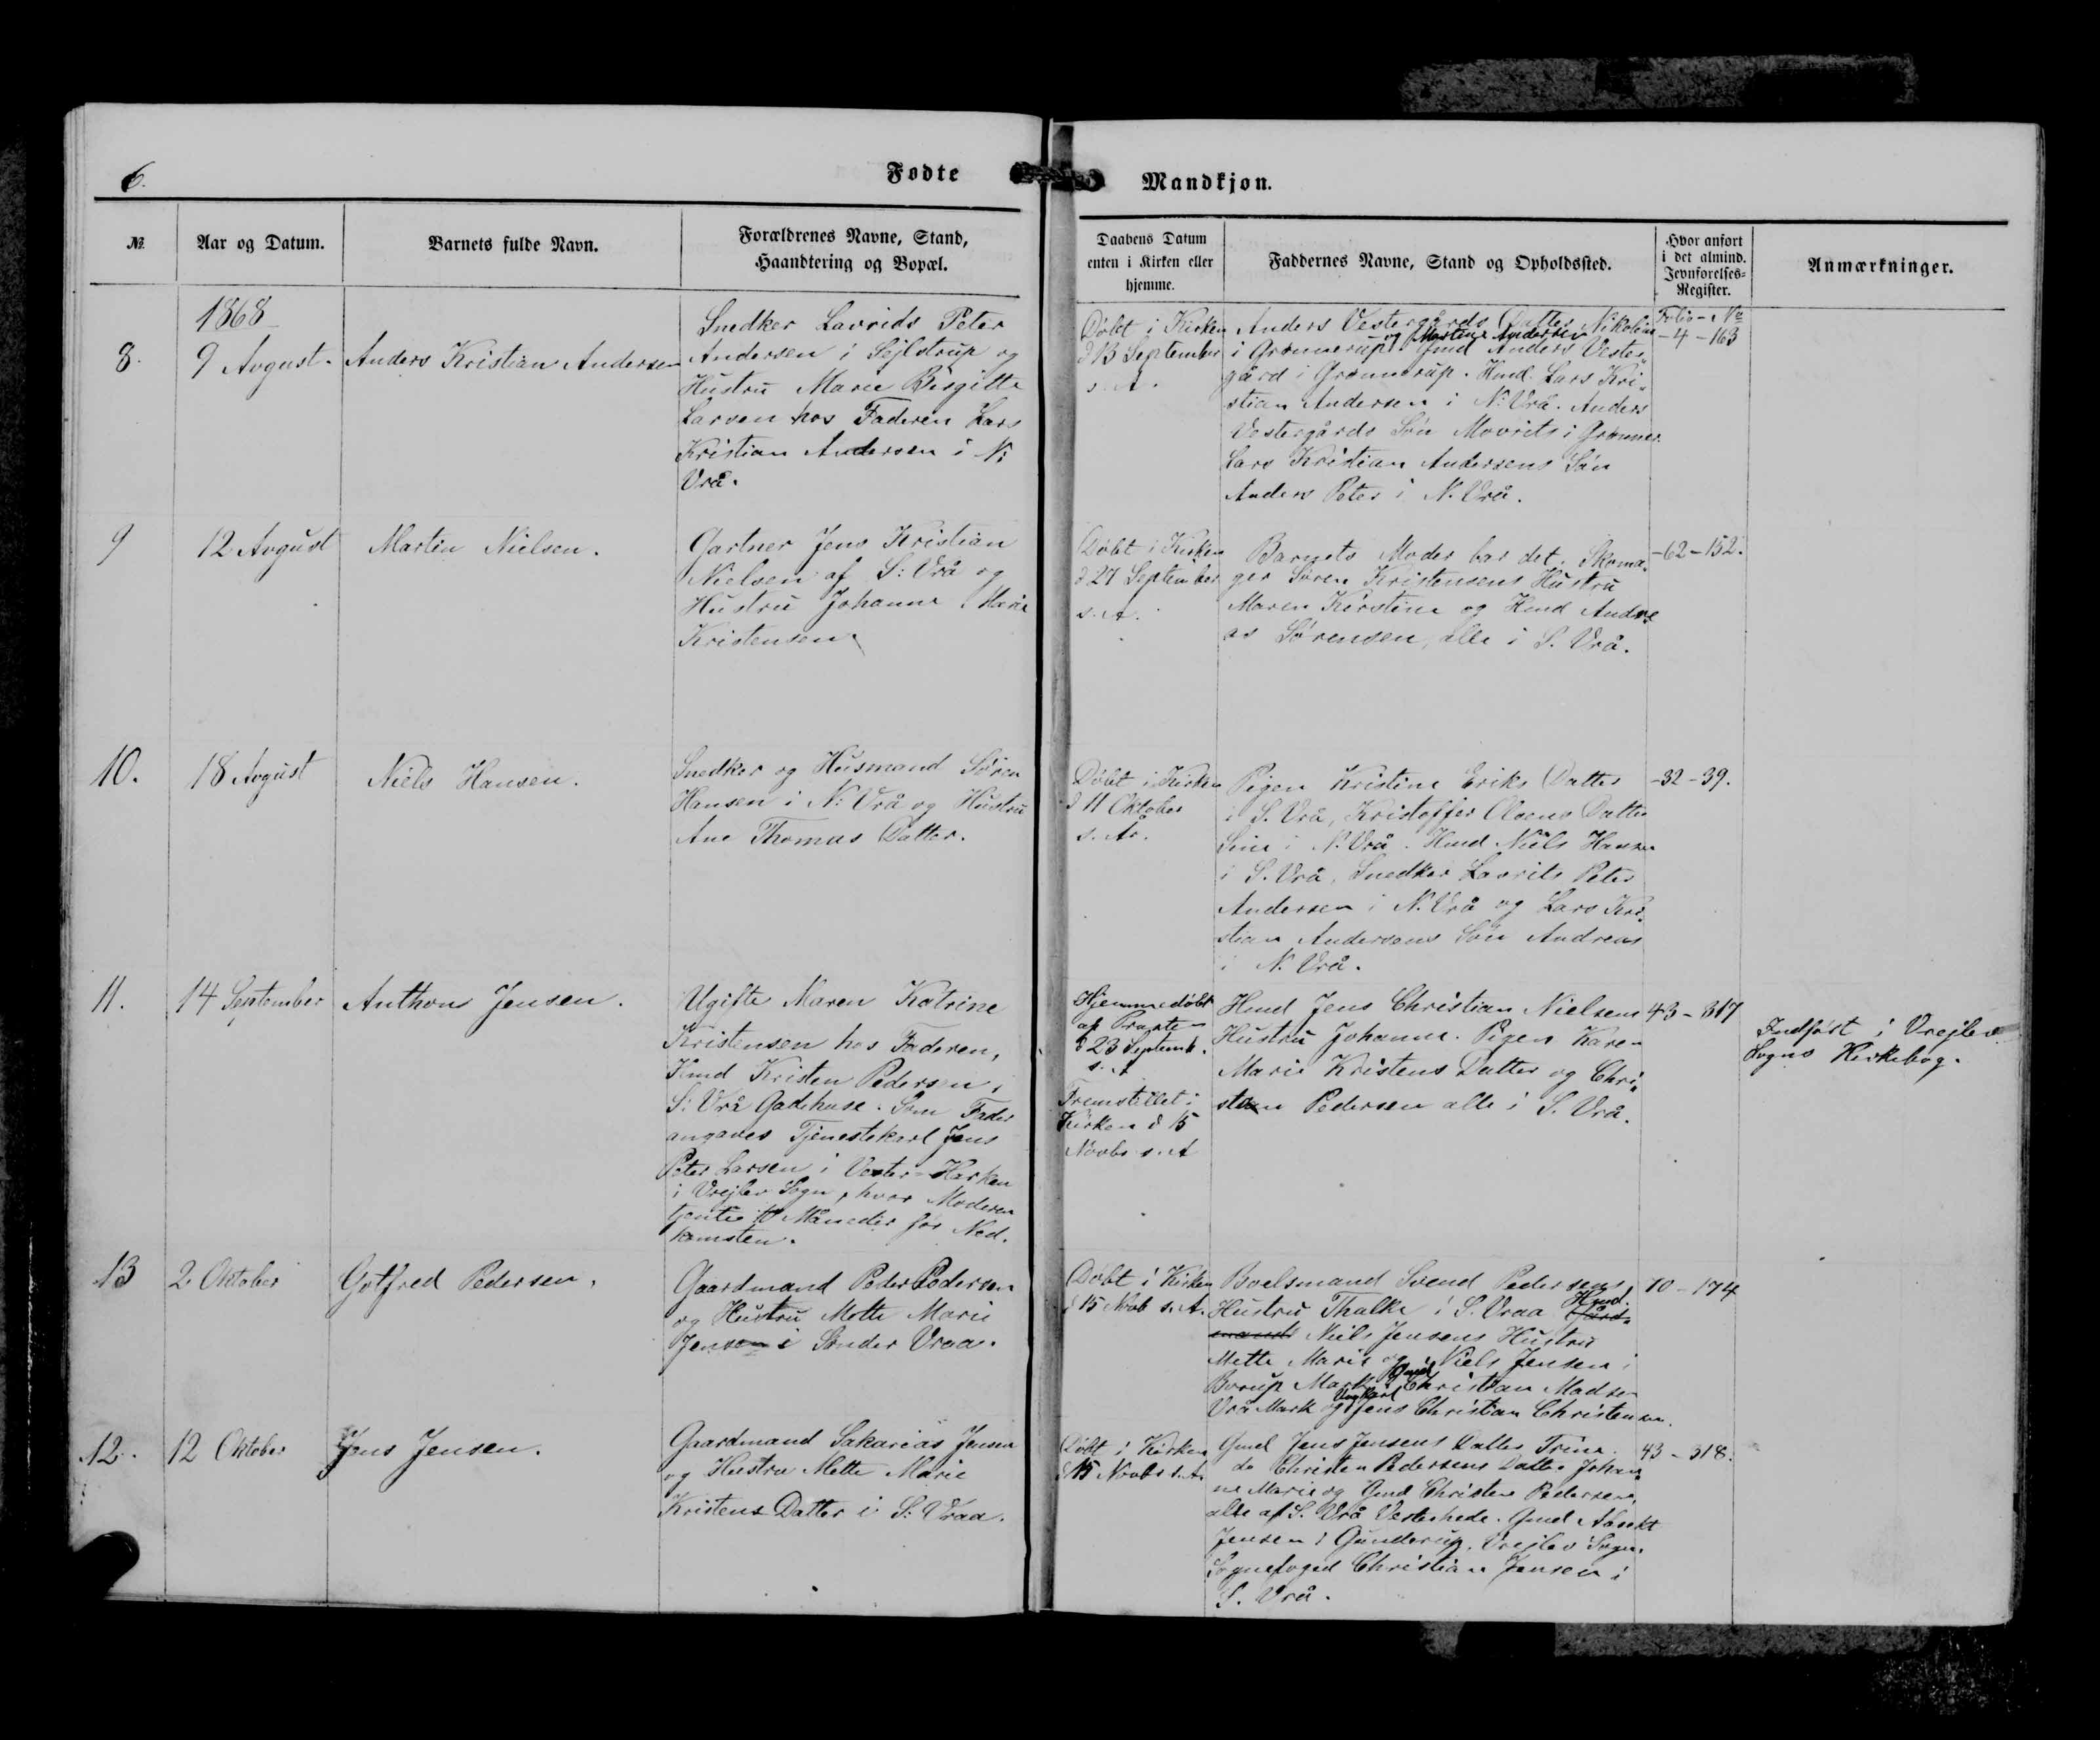 6.
Fødte
Mandkjøn.
№
Aar og Datum.
Barnets fulde Navn.
Forældrenes Navne, Stand,
Haandtering og Bopæl.
Daabens Datum
enten i Kirken eller
hjemme.
Faddernes Navne, Stand og Opholdssted.
Hvor anført
i det almind.
Jevnførelses-
Register.
Anmærkninger.
1868
8.
9 Avgust.
Anders Kristian Andersen
Snedker Lavrids Peter
Andersen i Sejlstrup og
Hustru Marie Birgitte
Larsen hos Faderen Lars
Kristian Andersen i N:
Vrå.
Døbt i Kirken
d 13 September
s. A.
Anders Vestergårds Datter Nikoline
og Martine Andersen
i Grønnerup. Gmd Anders Vester„
gård i Grønnerup. Hmd. Lars Kri„
stian Andersen i N: Vrå. Anders
Vestergårds Søn Movrits i Grønner.
Lars Kristian Andersens Søn
Anders Peter i N. Vrå.
Folio - No
- 4 - 163
9
12 Avgust
Martin Nielsen.
Gartner Jens Kristian
Nielsen af S: Vrå og
Hustru Johanne Marie
Kristensen.
Døbt i Kirken
d 27 September
s. A.
Barnets Moder bar det. Skoma„
ger Søren Kristensens Hustru
Maren Kirstine og Hmd Andre
as Sørensen, alle i S. Vrå.
- 62 - 152.
10.
18 Avgust
Niels Hansen.
Snedker og Husmand Søren
Hansen i N: Vrå og Hustru
Ane Thomas Datter.
Døbt i Kirken
d 11 Oktober
s. Ar.
Pigen Kristine Eriks Datter
i S. Vrå, Kristoffer Olsens Datter
Sine i N. Vrå. Hmd Niels Hansen
i S. Vrå, Snedker Lavrits Peter
Andersen i N. Vrå og Lars Kri„
stian Andersens Søn Andreas
i N. Vrå.
- 32 - 39.
11.
14 September
Anthon Jensen.
Ugifte Maren Katrine
Kristensen hos Faderen,
Hmd Kristen Pedersen,
S: Vrå Gadehuse. Som Fader
angaves Tjenestekarl Jens
Peter Larsen i Vester-Harken
i Vrejlev Sogn, hvor Moderen
tjente 10 Måneder før Ned„
komsten.
Hjemmedøbt
af Præsten
d 23 Septemb.
s. A
Fremstillet i
Kirken d 15
Novbr s. A
Hmd Jens Christian Nielsens
Hustru Johanne. Pigen Karen
Marie Kristens Datter og Chri„
sten Pedersen alle i S. Vrå.
43 - 317
Indført i Vrejlev
Sogns Kirkebog.
13
2 Oktober
Gotfred Pedersen.
Gaardmand Peder Pedersen
og Hustru Mette Marie
Jensen i Sønder Vraa.
Døbt i Kirken
d 15 Novb s. A.
Boelsmand Svend Pedersens
Hustru Thalke i S. Vraa Hmd.
Gård-
mand Niels Jensens Hustru
Mette Marie og Niels Jensen i
Borup Mark, Gmd Christian Madsen
Vrå Mark og Ungkarl Jens Christian Christensen.
70 - 174
12.
12 Oktober
Jens Jensen.
Gaardmand Sakarias Jensen
og Hustru Mette Marie
Kristens Datter i S: Vraa.
Døbt i Kirken
d 15 Novbr s. A.
Gmd Jens Jensens Datter Trine.
do Christen Pedersens Datter Johan
ne Marie og Gmd Christen Pedersen,
alle af S. Vrå Vesterhede. Gmd
Jensen i Gunderup, Vrejlev Sogn.
Sognefoged Christian Jensen i
S. Vrå.
43 - 318.